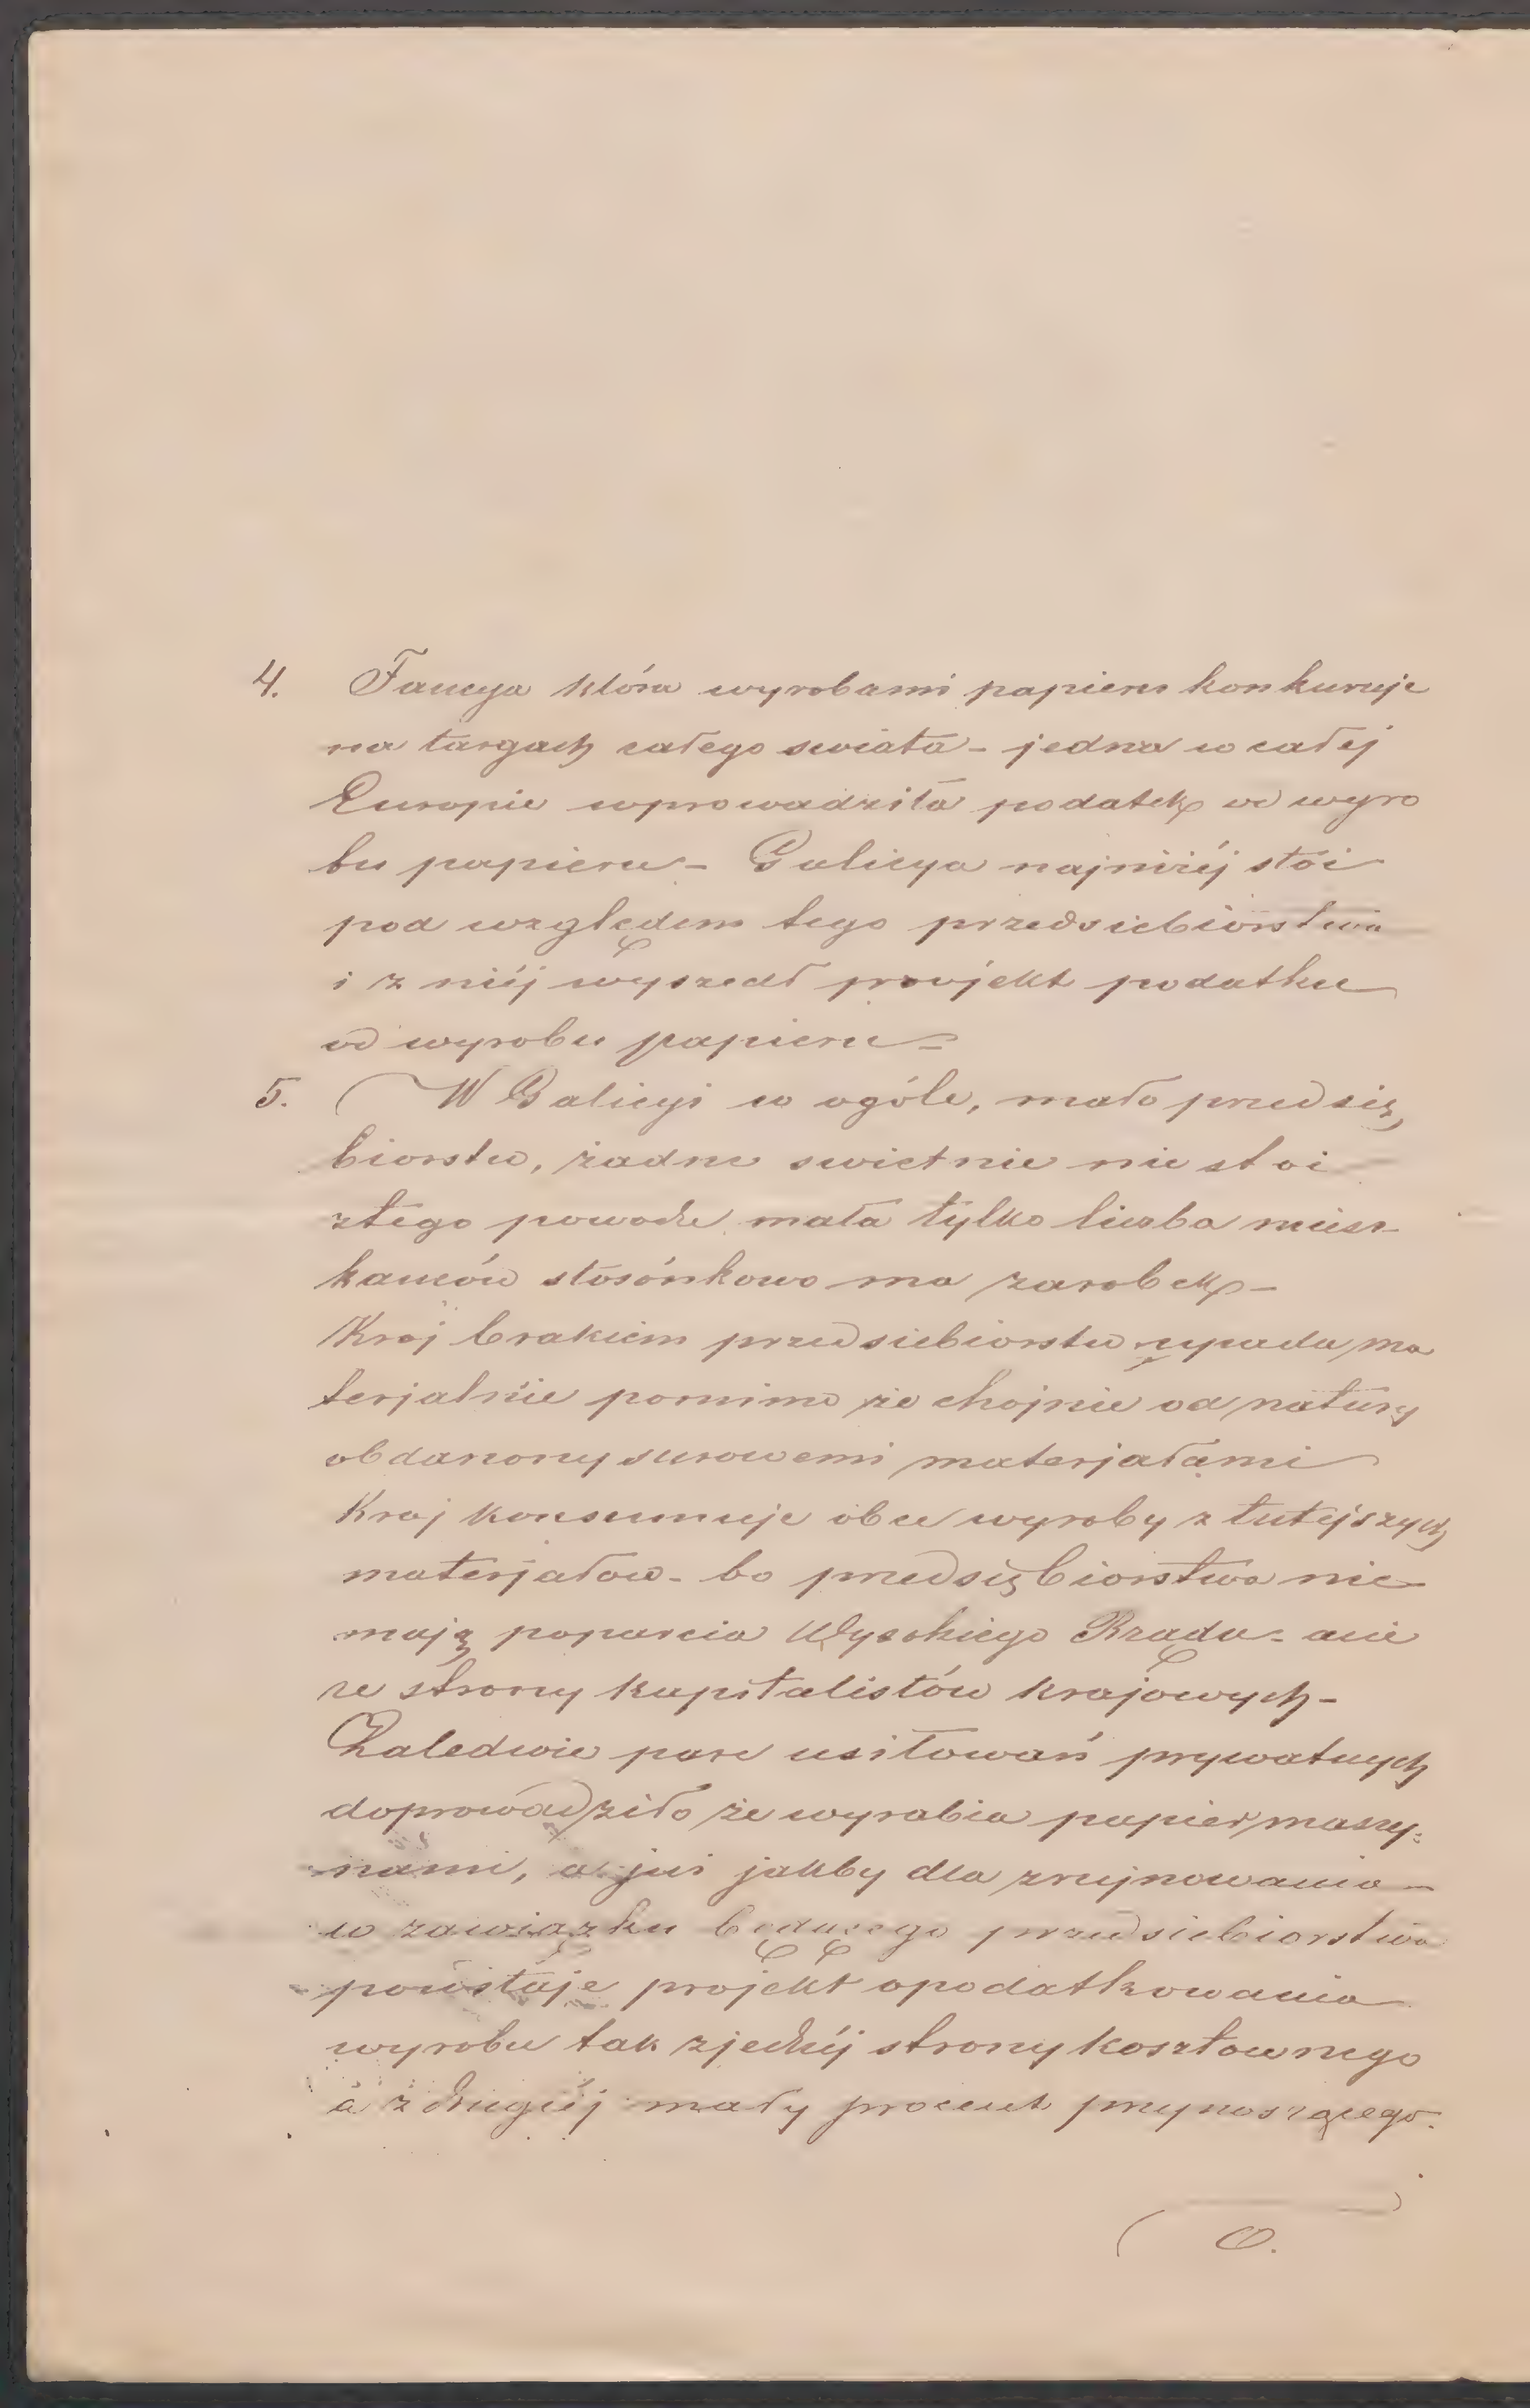 4. Fancya która wyrobami papieru konkuruje
na targach całego swiata - jedna w całej
Europie wprowadziła podatek od wyro
bu papieru - Galicya najniżéj stoi
pod względem tego przedsiebiorstwa
i z niéj wyszedł projekt podatku
od wyrobu papieru -
5. W Galicyi w ogóle, mało przedsię„
biorstw, żadne swietnie nie stoi
ztego powodu mała tylko liczba miesz-
kańców stosónkowo ma zarobek -
Kraj brakiem przedsiebiorstw upada ma
terjalnie pomimo że chojnie od natury
obdarzony surowemi materjałami
Kraj konsumuje obce wyroby z tutejszych
materjałow - bo przedsiębiorstwa nie
mają poparcia Wysokiego Rządu - ani
ze strony kapitalistów krajowych -
Zaledwie pare usiłowań prywatnych
doprowadziło że wyrabia papier maszy-
nami, a już jakby dla zrujnowania -
w zawiązku będącego przedsiebiorstwa
powstaje projekt opodatkowania
wyrobu tak zjednéj strony kosztownego
a z drugiéj mały procent przynoszącego.
O.